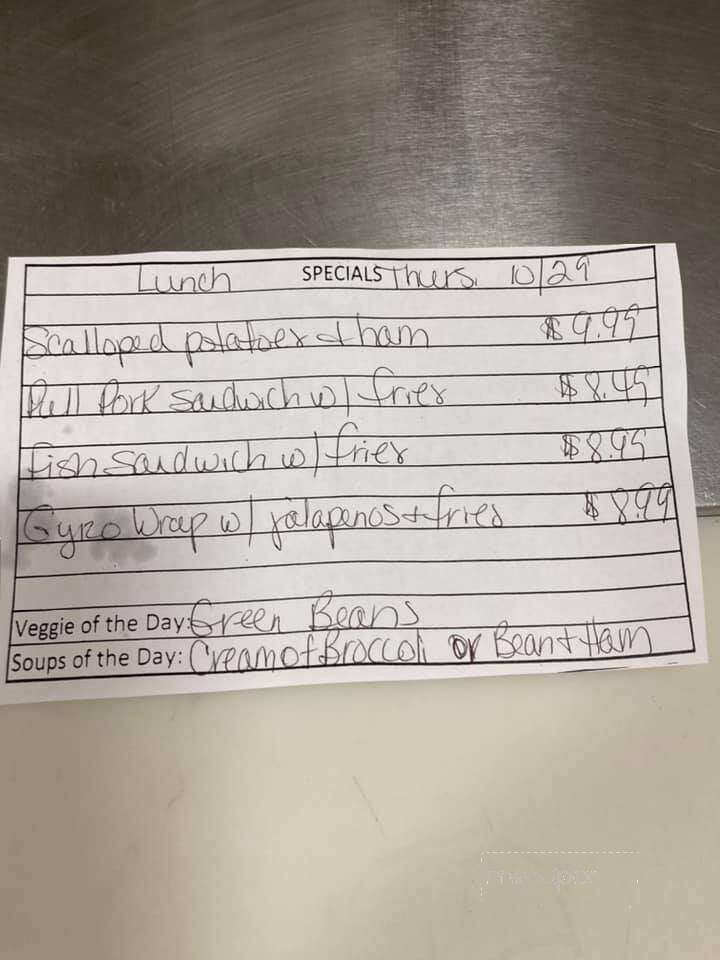 Lunch SPECIALS Thurs. 10/29
Scalloped potatoes + ham $9.99
Pull Pork Sandwich w/ fries $8.49
fish Sandwich w/ fries $8.99
Gyro Wrap w/ jalapenos + fries $8.99
Veggie of the Day: Green Beans
Soups of the Day: Cream of Broccoli or Bean + Ham